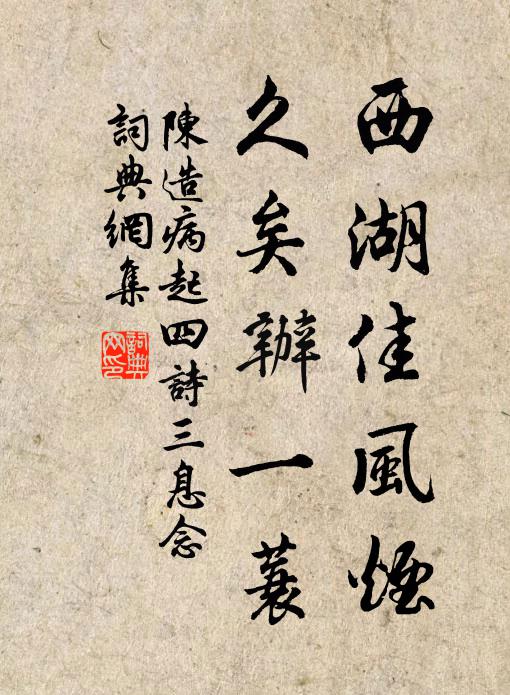 西湖佳風煙
久矣辦一蓑
陳造病起四詩三息念
詞典網集
詞典網印